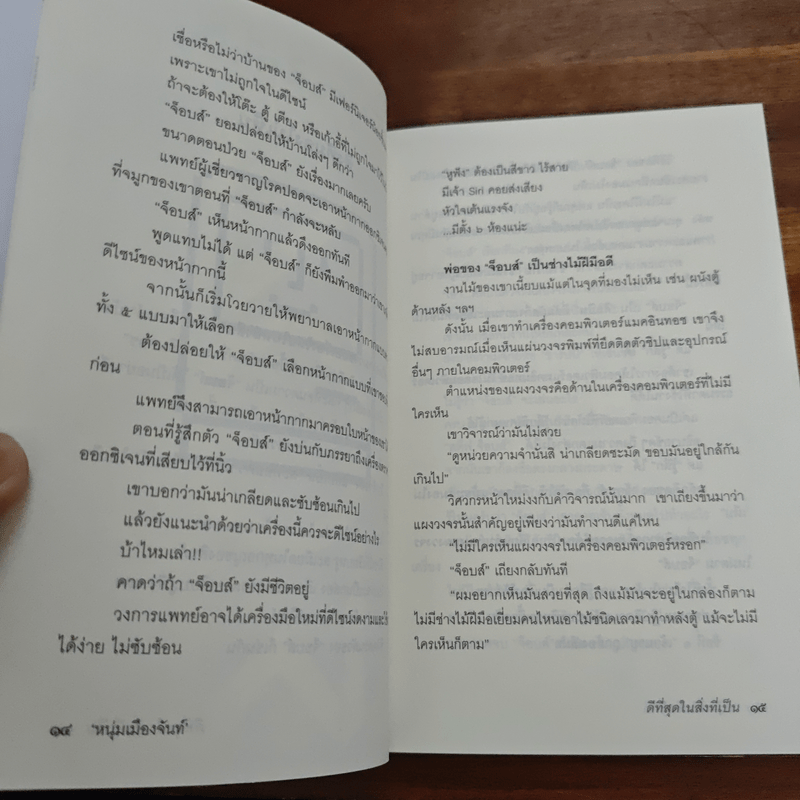 เชื่อหรือไม่ว่าบ้านของ "จ็อบส์" มีเฟอร์นิเจอร์
เพราะเขาไม่ถูกใจในดีไซน์
ถ้าจะต้องให้โต๊ะ ตู้ เตียง หรือเก้าอี้ที่ไม่ถูกใจ
"จ็อบส์" ยอมปล่อยให้บ้านโล่งๆ ดีกว่า
ขนาดตอนป่วย "จ็อบส์" ยังเรื่องมากเลยครับ
แพทย์ผู้เชี่ยวชาญโรคปอดจะเอาหน้ากากออกซิเจน
ที่จมูกของเขาตอนที่ "จ็อบส์" กำลังจะหลับ
"จ็อบส์" เห็นหน้ากากแล้วดึงออกทันที
พูดแทบไม่ได้ แต่ "จ็อบส์" ก็ยังพึมพำออกมาว่า
ดีไซน์ของหน้ากากนี้
จากนั้นก็เริ่มโวยวายให้พยาบาลเอาหน้ากาก
ทั้ง ๕ แบบมาให้เลือก
ต้องปล่อยให้ "จ็อบส์" เลือกหน้ากากแบบที่เขา
ก่อน
แพทย์จึงสามารถเอาหน้ากากมาครอบใบหน้าของเขา
ตอนที่รู้สึกตัว "จ็อบส์" ยังบ่นกับภรรยาถึงเครื่อง
ออกซิเจนที่เสียบไว้ที่นิ้ว
เขาบอกว่ามันน่าเกลียดและซับซ้อนเกินไป
แล้วยังแนะนำด้วยว่าเครื่องนี้ควรจะดีไซน์อย่างไร
บ้าไหมเล่า!!
คาดว่าถ้า "จ็อบส์" ยังมีชีวิตอยู่
วงการแพทย์อาจได้เครื่องมือใหม่ที่ดีไซน์งดงามและ
ได้ง่าย ไม่ซับซ้อน
๑๔ 'หนุ่มเมืองจันท์'
"หูฟัง" ต้องเป็นสีขาว ไร้สาย
มีเจ้า Siri คอยส่งเสียง
หัวใจเต้นแรงจัง
...มีตั้ง ๖ ห้องแน่ะ
พ่อของ "จ็อบส์" เป็นช่างไม้ฝีมือดี
งานไม้ของเขาเนี้ยบแม้แต่ในจุดที่มองไม่เห็น เช่น ผนังตู้
ด้านหลัง ฯลฯ
ดังนั้น เมื่อเขาทำเครื่องคอมพิวเตอร์แมคอินทอช เขาจึง
ไม่สบอารมณ์เมื่อเห็นแผ่นวงจรพิมพ์ที่ยึดติดตัวชิปและอุปกรณ์
อื่นๆ ภายในคอมพิวเตอร์
ตำแหน่งของแผงวงจรคือด้านในเครื่องคอมพิวเตอร์ที่ไม่มี
ใครเห็น
เขาวิจารณ์ว่ามันไม่สวย
"ดูหน่วยความจำนั่นสิ น่าเกลียดชะมัด ขอบมันอยู่ใกล้กัน
เกินไป"
วิศวกรหน้าใหม่งงกับคำวิจารณ์นั้นมาก เขาเถียงขึ้นมาว่า
แผงวงจรนั้นสำคัญอยู่เพียงว่ามันทำงานดีแค่ไหน
"ไม่มีใครเห็นแผงวงจรในเครื่องคอมพิวเตอร์หรอก"
"จ็อบส์" เถียงกลับทันที
"ผมอยากเห็นมันสวยที่สุด ถึงแม้มันจะอยู่ในกล่องก็ตาม
ไม่มีช่างไม้ฝีมือเยี่ยมคนไหนเอาไม้ชนิดเลวมาทำหลังตู้ แม้จะไม่มี
ใครเห็นก็ตาม"
ดีที่สุดในสิ่งที่เป็น ๑๕